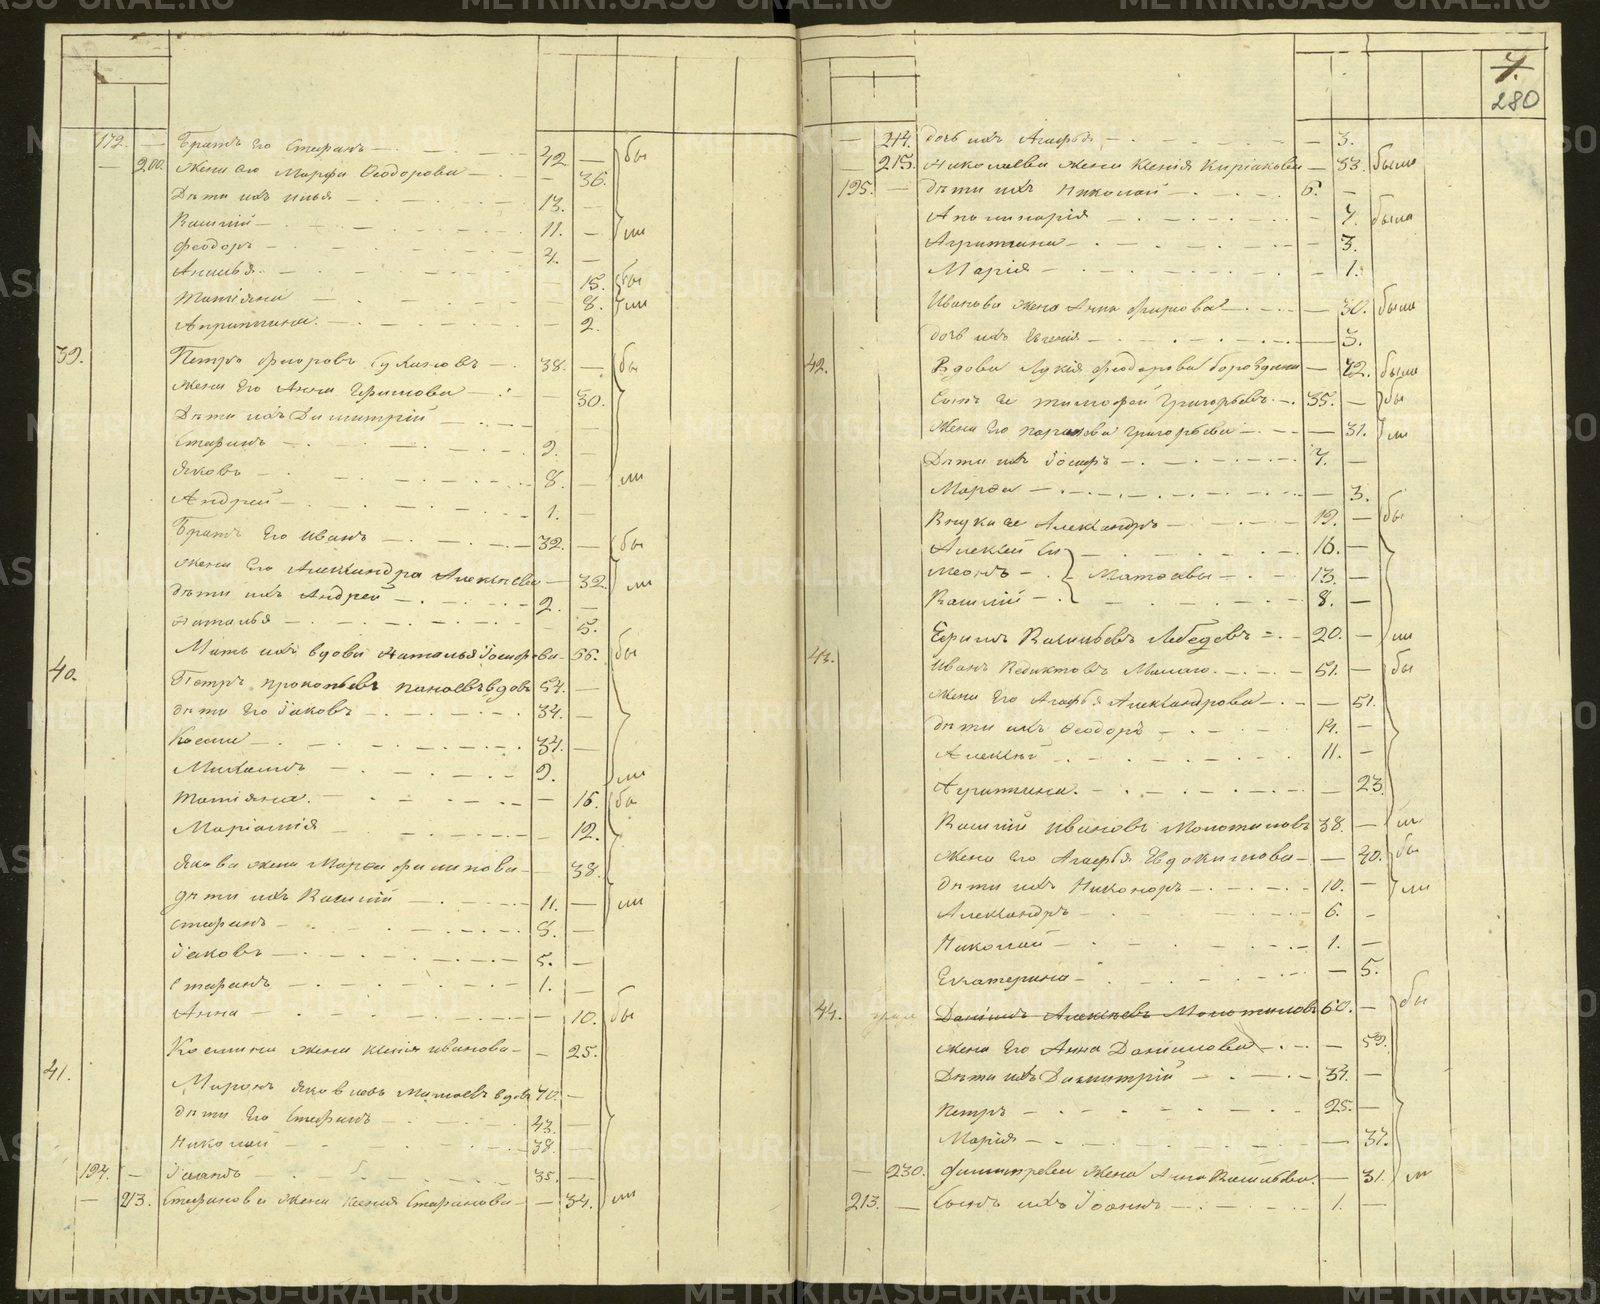 172. — Братъ его Стефанъ — 42. — бы
— 200. Жена его Марфа Ѳеодорова — 36.
Дѣти ихъ Илья — 13. —
Василій — 11. — ли
Феодоръ — 4. —
Анисья — 15. бы
Татіяна — 8. ли
Агрипина — 2.
39. Петръ Флоровъ — 38. — бы
Жена его Анна — 30.
Дѣти ихъ Димитрій —
Стефанъ — 9. —
Яковъ — 8. — ли
Андрей — 1. —
Братъ его Иванъ — 32. — бы
Жена его Александра Алексѣева — 32. ли
дѣти ихъ Андрей — 2. —
Наталья — 5.
Мать ихъ вдова Наталья Іосифова — 66. бы
40. Петръ Прокопьевъ вдовъ 57. —
дѣти его Іаковъ — 34. —
Косма — 34. —
Михаилъ — 9. ли
Татіяна — 16. бы
Маріамія — 12.
Якова жена Марѳа Филипова — 38.
дѣти ихъ Василій — 11. — ли
Стефанъ — 8. —
Іаковъ — 5. —
Стефанъ — 1. —
Анна — 10. бы
Космина жена Ксенія Иванова — 25.
41. Миронъ Яковлевъ вдовъ 70. —
дѣти его Стефанъ — 43. —
Николай — 38. —
194. — Іоаннъ — 35. —
— 213. Стефанова жена Ксенія Стефанова — 34. ли
7.
280
— 214. дочь ихъ Агафья — 3.
— 215. Николаева жена Ксенія Киріакова — 33. была
195. — дѣти ихъ Николай — 6. —
Аполинарія — 7. была
Агрипина — 3.
Марія — 1.
Иванова жена Анна Фирсова — 30. была
дочь ихъ Евгенія — 3.
42. Вдова Лукія Феодорова Бороздина — 72. была
Сынъ ея Тимофей Григорьевъ — 35. — бы
Жена его Григорьева — 31. ли
Дѣти ихъ Іосифъ — 7. —
Марѳа — 3.
Внуки ея Александръ — 19. — бы
Алексѣй — 16. —
Матвѣевы — 13. —
Василій — 8. —
Ефимъ Васильевъ Лебедевъ — 20. — ли
43. Иванъ — 51. — бы
Жена его Агафья Александрова — 51.
дѣти ихъ Ѳеодоръ — 14. —
Алексѣй — 11. —
Агрипина — 23.
Василій Ивановъ Молотиловъ 38. — ли
Жена его Агафья Евдокимова — 40. бы
дѣти ихъ Никоноръ — 10. — ли
Александръ — 6. —
Николай — 1. —
Екатерина — 5.
44. Даніилъ Алексѣевъ Молотиловъ 60. — бы
Жена его Анна Даниилова — 59.
Дѣти ихъ Димитрій — 34. —
Петръ — 25. —
Марія — 37.
— 230. Димитріева жена Анна Васильева — 31. ли
213. — Сынъ ихъ Іоаннъ — 1. —
METRIKI.GASU-URAL.RU